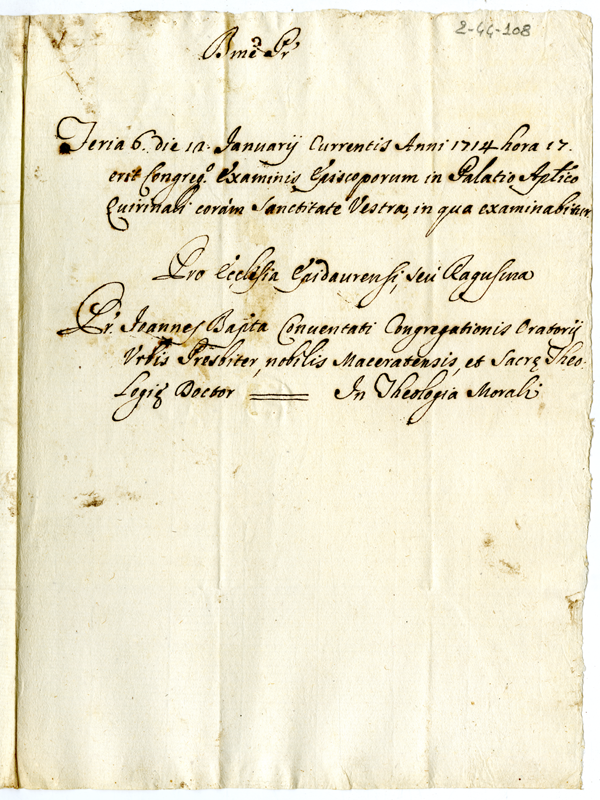 2-44-108
Bm̃e Pr̃
Feria 6. die 12. Januarij Currentis Anni 1714 hora 17.
erit Congreg.o Examinis Episcoporum in Palatio Aplĩco
Quirinali coràm Sanctitate Vestra, in qua examinabitur
Pro Ecclesia Epidaurensi, seù Ragusina
Pr. Joannes Bapt̃a Conventati Congregationis Oratorij
Vrbis Presbiter, nobilis Maceratensis, et Sacrę Theo-
logię Doctor == In Theologia Morali